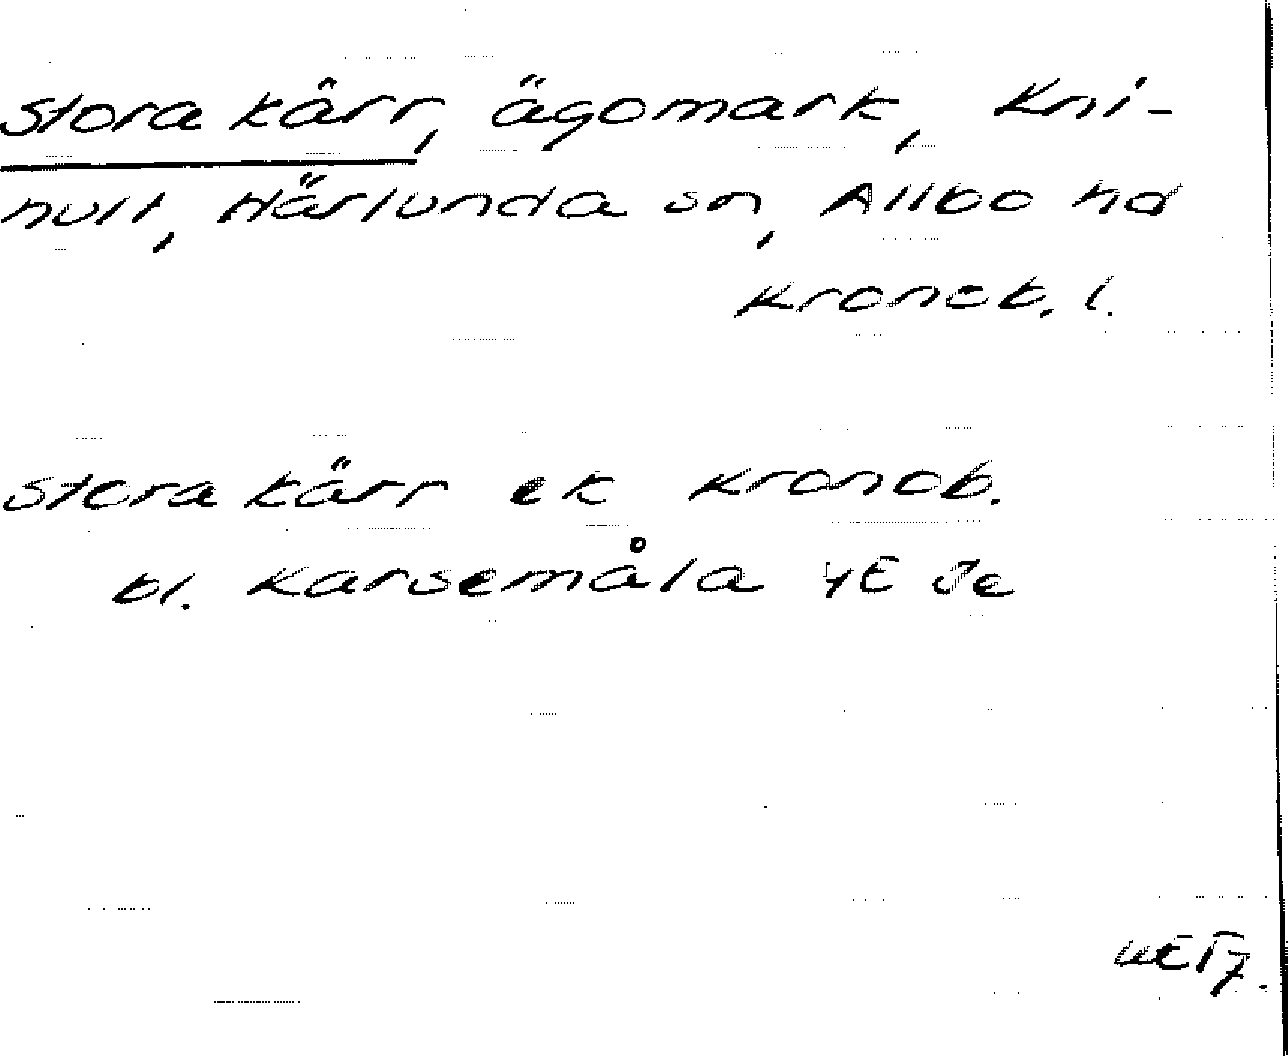 stora kärr, ägomark, Kni-
hult, Härlunda sn, Allbo hd
Kronob. l.
stora kärr ek Kronob.
bl. Karsemåla 4E Je